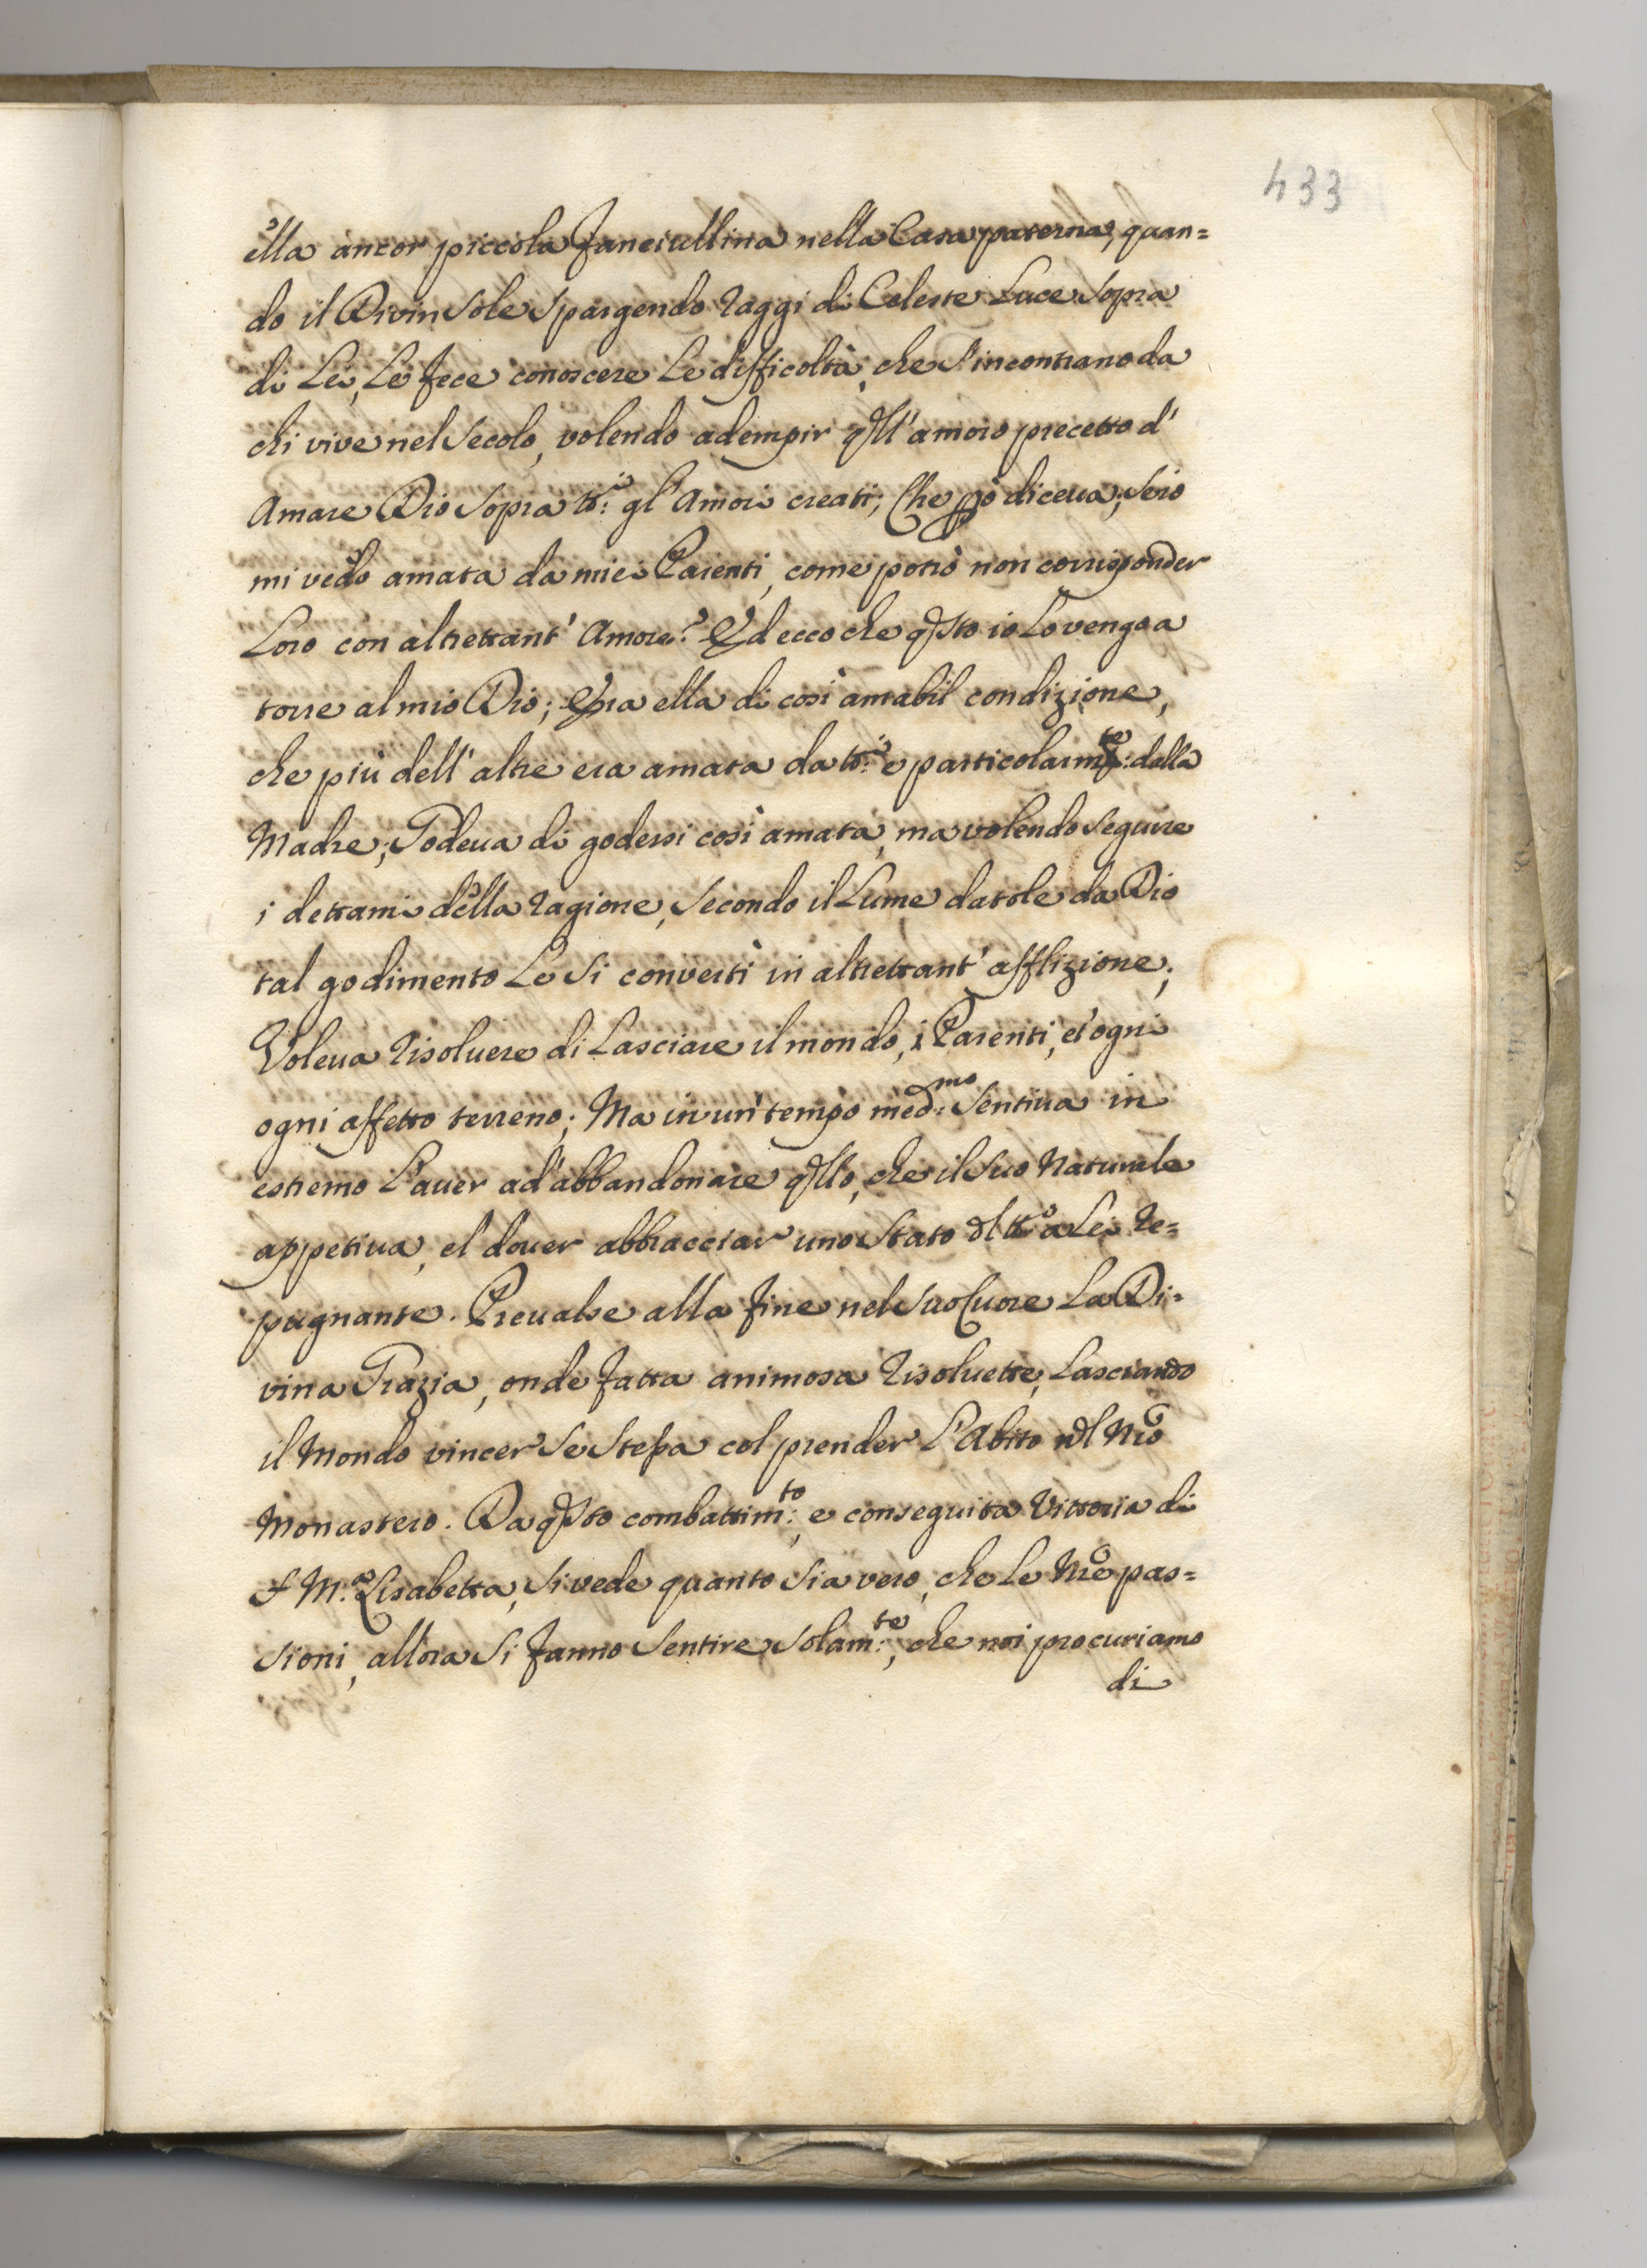 433
ella ancor piccola fanciullina nella Casa paterna, quan=
do il Divin Sole Spargendo raggi di Celeste Luce Sopra
di Lei, Le fece conoscere Le difficoltà, che S'incontrano da
chi vive nel Secolo, volendo adempir qll'amoro precetto d'
Amare Dio Sopra tt:i gl'Amori creati; Che ppò diceua; Se io
mi vedo amata da miei Parenti, come potrò non corrisponder
Loro con altrettant' Amore? Ed ecco che qsto io Lo vengo a
torre al mio Dio; Era ella di così amabil condizione,
che più dell'altre era amata da tt:i e particolarmte: della
Madre; Godeua di godersi così amata, ma volendo Seguire
i dettami della ragione, Secondo il Lume datole da Dio
tal godimento Le Si convertì in altrettant' afflizione;
Voleua risoluere di Lasciare il mondo, i Parenti, et ogni
ogni affetto terreno; Ma in un tempo med:mo Sentiua in
estremo L'auer ad'abbandonare qllo, che il Suo Naturale
appetiua, el douer abbracciar uno Stato dl tto a Lei re=
pugnante. Preualse alla fine nel Suo Cuore La Di=
vina Grazia, onde fatta animosa risoluette, Lasciando
il Mondo vincer Se Stessa col prender L'Abito nel Nrõ
Monastero. Da qsto combattim:to e conseguita Vittoria di
S M:a Lisabetta, Si vede quanto Sia vero, che Le Nrẽ pas=
sioni, allora Si fanno Sentire Solam:te, che noi procuriamo
di